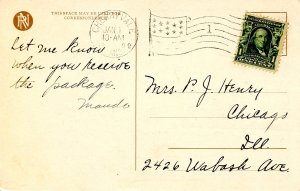 THIS FACE MAY BE USED FOR
CORRESPONDENCE
JAN 1
10-AM
1
Let me know
when you receive
the package.
Maude
Mrs. P. J. Henry
Chicago
Ill.
2426 Wabash Ave.